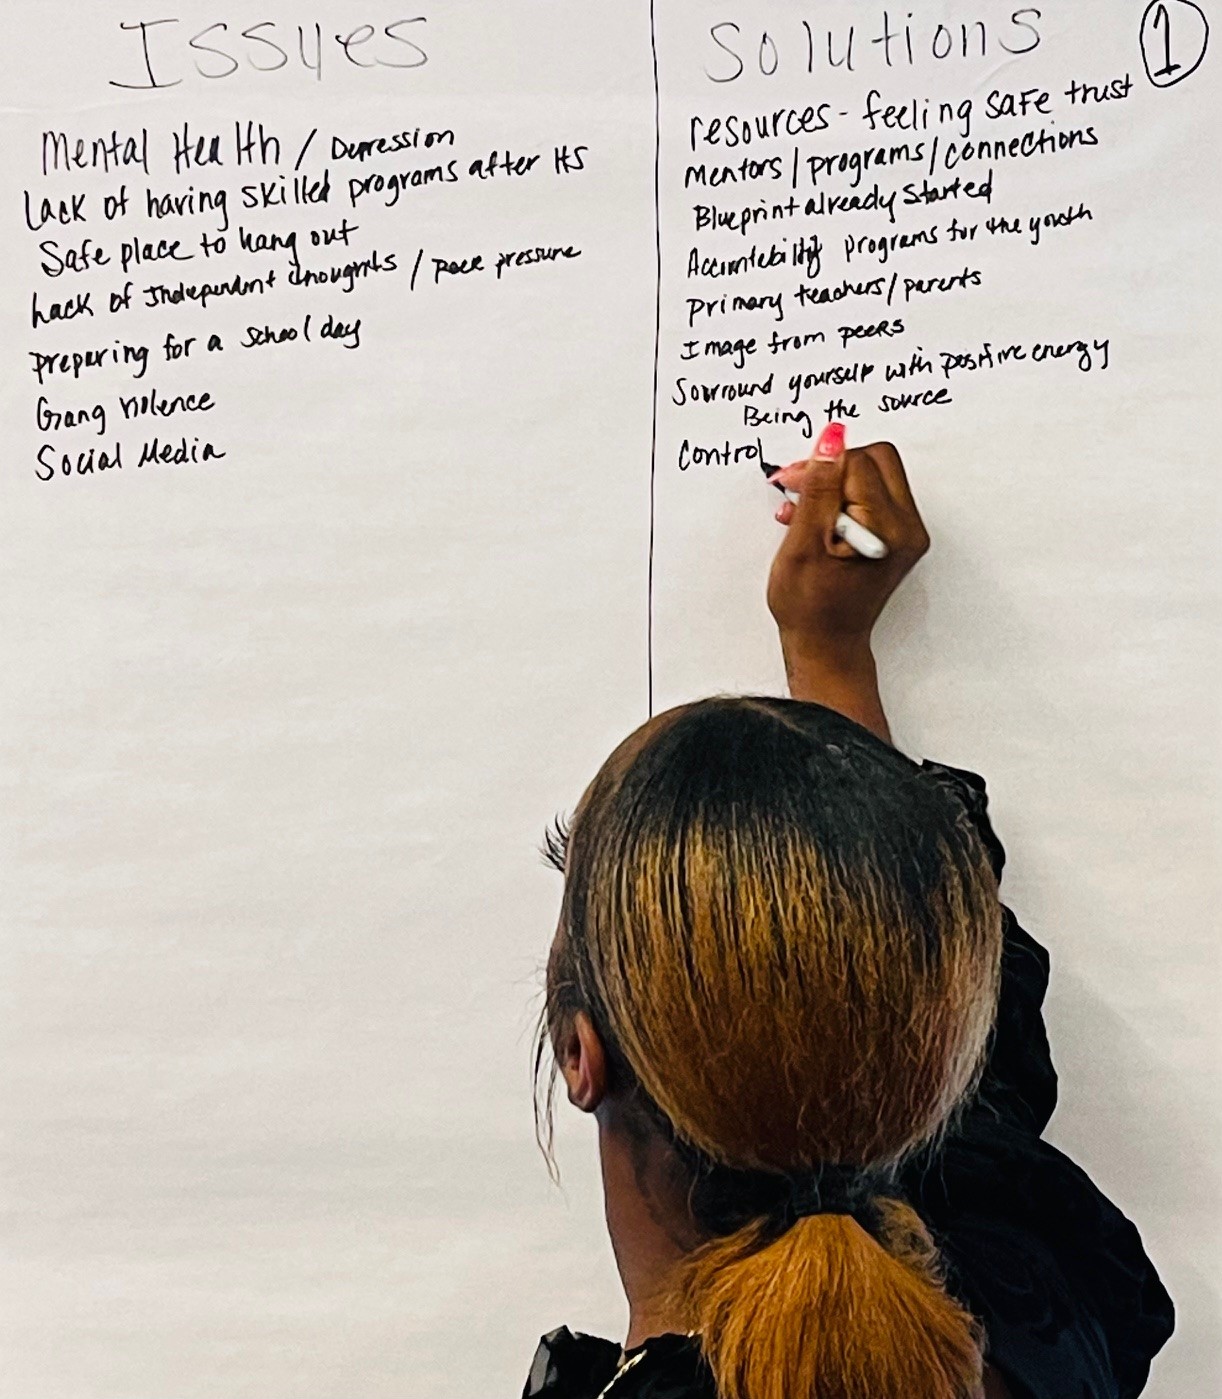 Issues
Mental Health / Depression
Lack of having skilled programs after HS
Safe place to hang out
Lack of Independent thoughts / peer pressure
preparing for a school day
Gang violence
Social Media
Solutions
1
resources - feeling safe trust
Mentors / programs / connections
Blueprint already started
programs for the youth
primary teachers / parents
Image from peers
Sourround yourself with positive energy
Being the source
Control